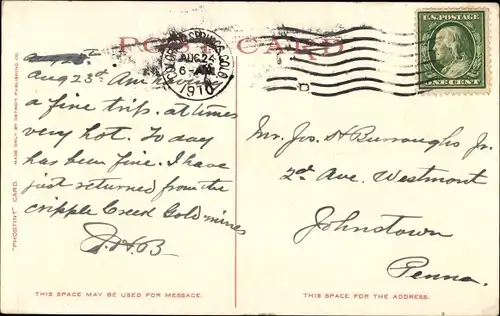 POST CARD
COLORADO SPRINGS, COLO.
AUG 24
6 AM
1910
U.S. POSTAGE
ONE CENT
Aug 23d Am having
a fine trip. at times
very hot. To day
has been fine. I have
just returned from the
cripple Creek Gold mines
J.H.B
Mr. Jos. H Burroughs Jr.
2d Ave. Westmont
Johnstown
Penna.
"PHOSTINT" CARD. MADE ONLY BY DETROIT PUBLISHING CO.
THIS SPACE MAY BE USED FOR MESSAGE.
THIS SPACE IS FOR THE ADDRESS.